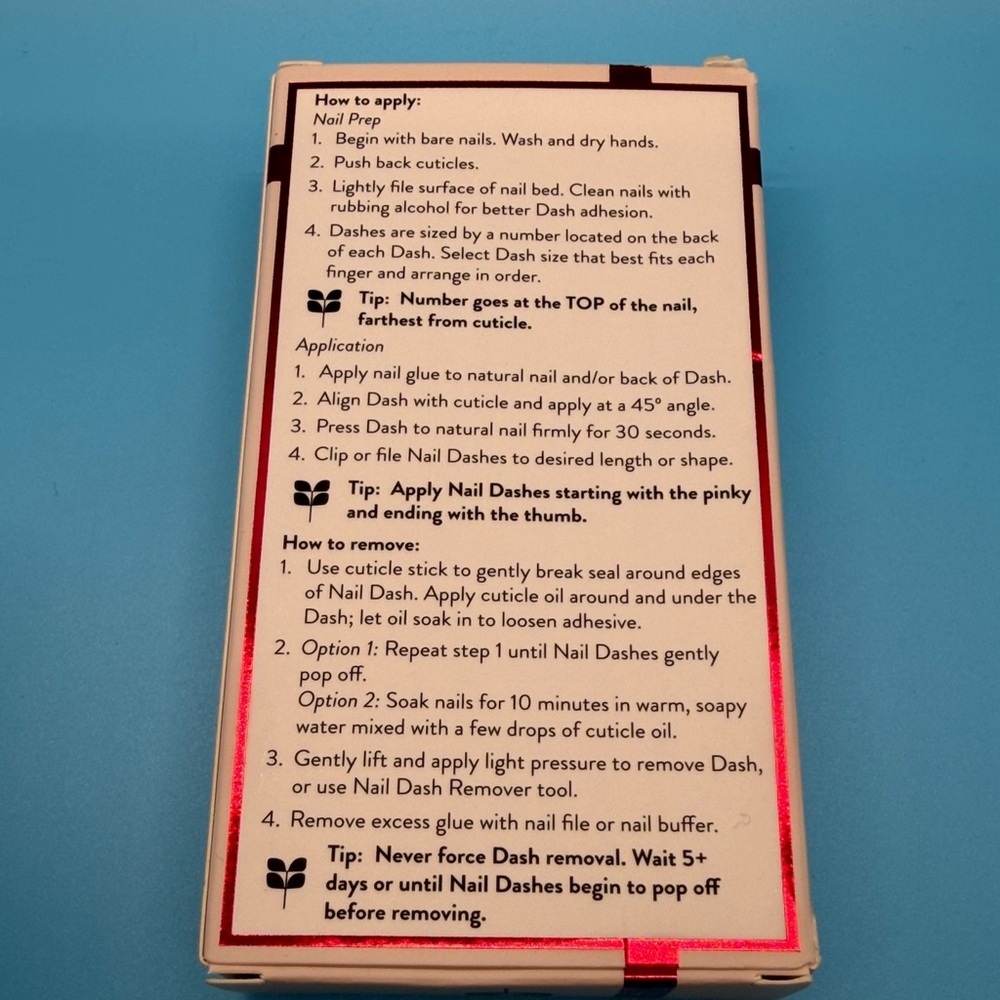 How to apply:
Nail Prep
1. Begin with bare nails. Wash and dry hands.
2. Push back cuticles.
3. Lightly file surface of nail bed. Clean nails with
rubbing alcohol for better Dash adhesion.
4. Dashes are sized by a number located on the back
of each Dash. Select Dash size that best fits each
finger and arrange in order.
Tip: Number goes at the TOP of the nail,
farthest from cuticle.
Application
1. Apply nail glue to natural nail and/or back of Dash.
2. Align Dash with cuticle and apply at a 45° angle.
3. Press Dash to natural nail firmly for 30 seconds.
4. Clip or file Nail Dashes to desired length or shape.
Tip: Apply Nail Dashes starting with the pinky
and ending with the thumb.
How to remove:
1. Use cuticle stick to gently break seal around edges
of Nail Dash. Apply cuticle oil around and under the
Dash; let oil soak in to loosen adhesive.
2. Option 1: Repeat step 1 until Nail Dashes gently
pop off.
Option 2: Soak nails for 10 minutes in warm, soapy
water mixed with a few drops of cuticle oil.
3. Gently lift and apply light pressure to remove Dash,
or use Nail Dash Remover tool.
4. Remove excess glue with nail file or nail buffer.
Tip: Never force Dash removal. Wait 5+
days or until Nail Dashes begin to pop off
before removing.